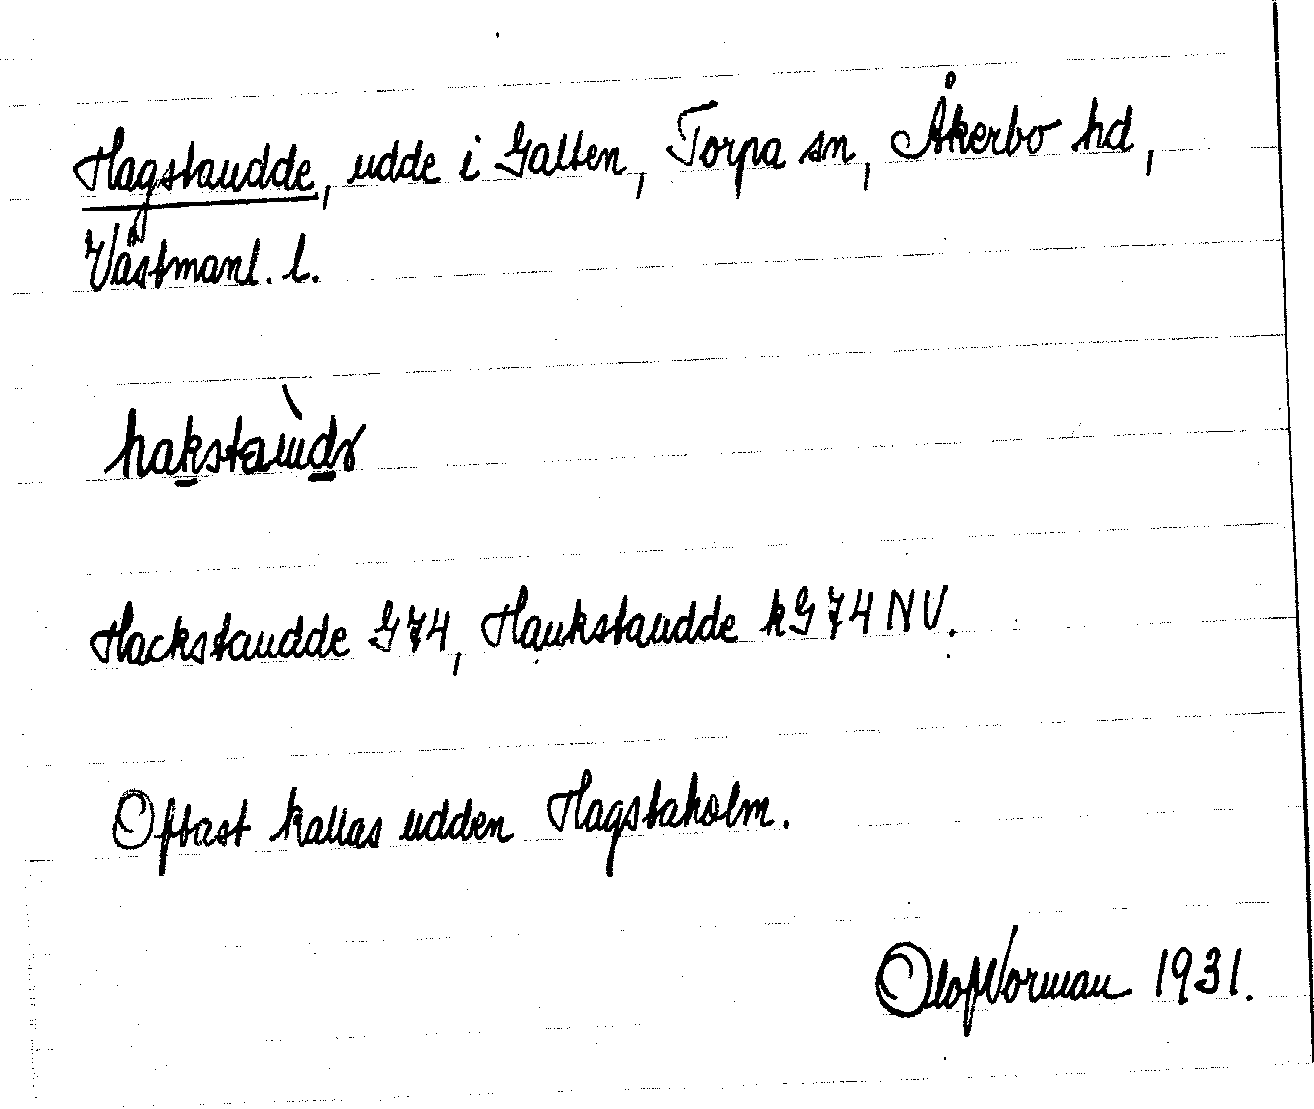 Hagstaudde, udde i Galten, Torpa sn, Åkerbo hd,
Västmanl. l.
hakstaùdə
Hackstaudde G74, Haukstaudde kG74NV.
Oftast kallas udden Hagstaholm.
Olof Norman 1931.